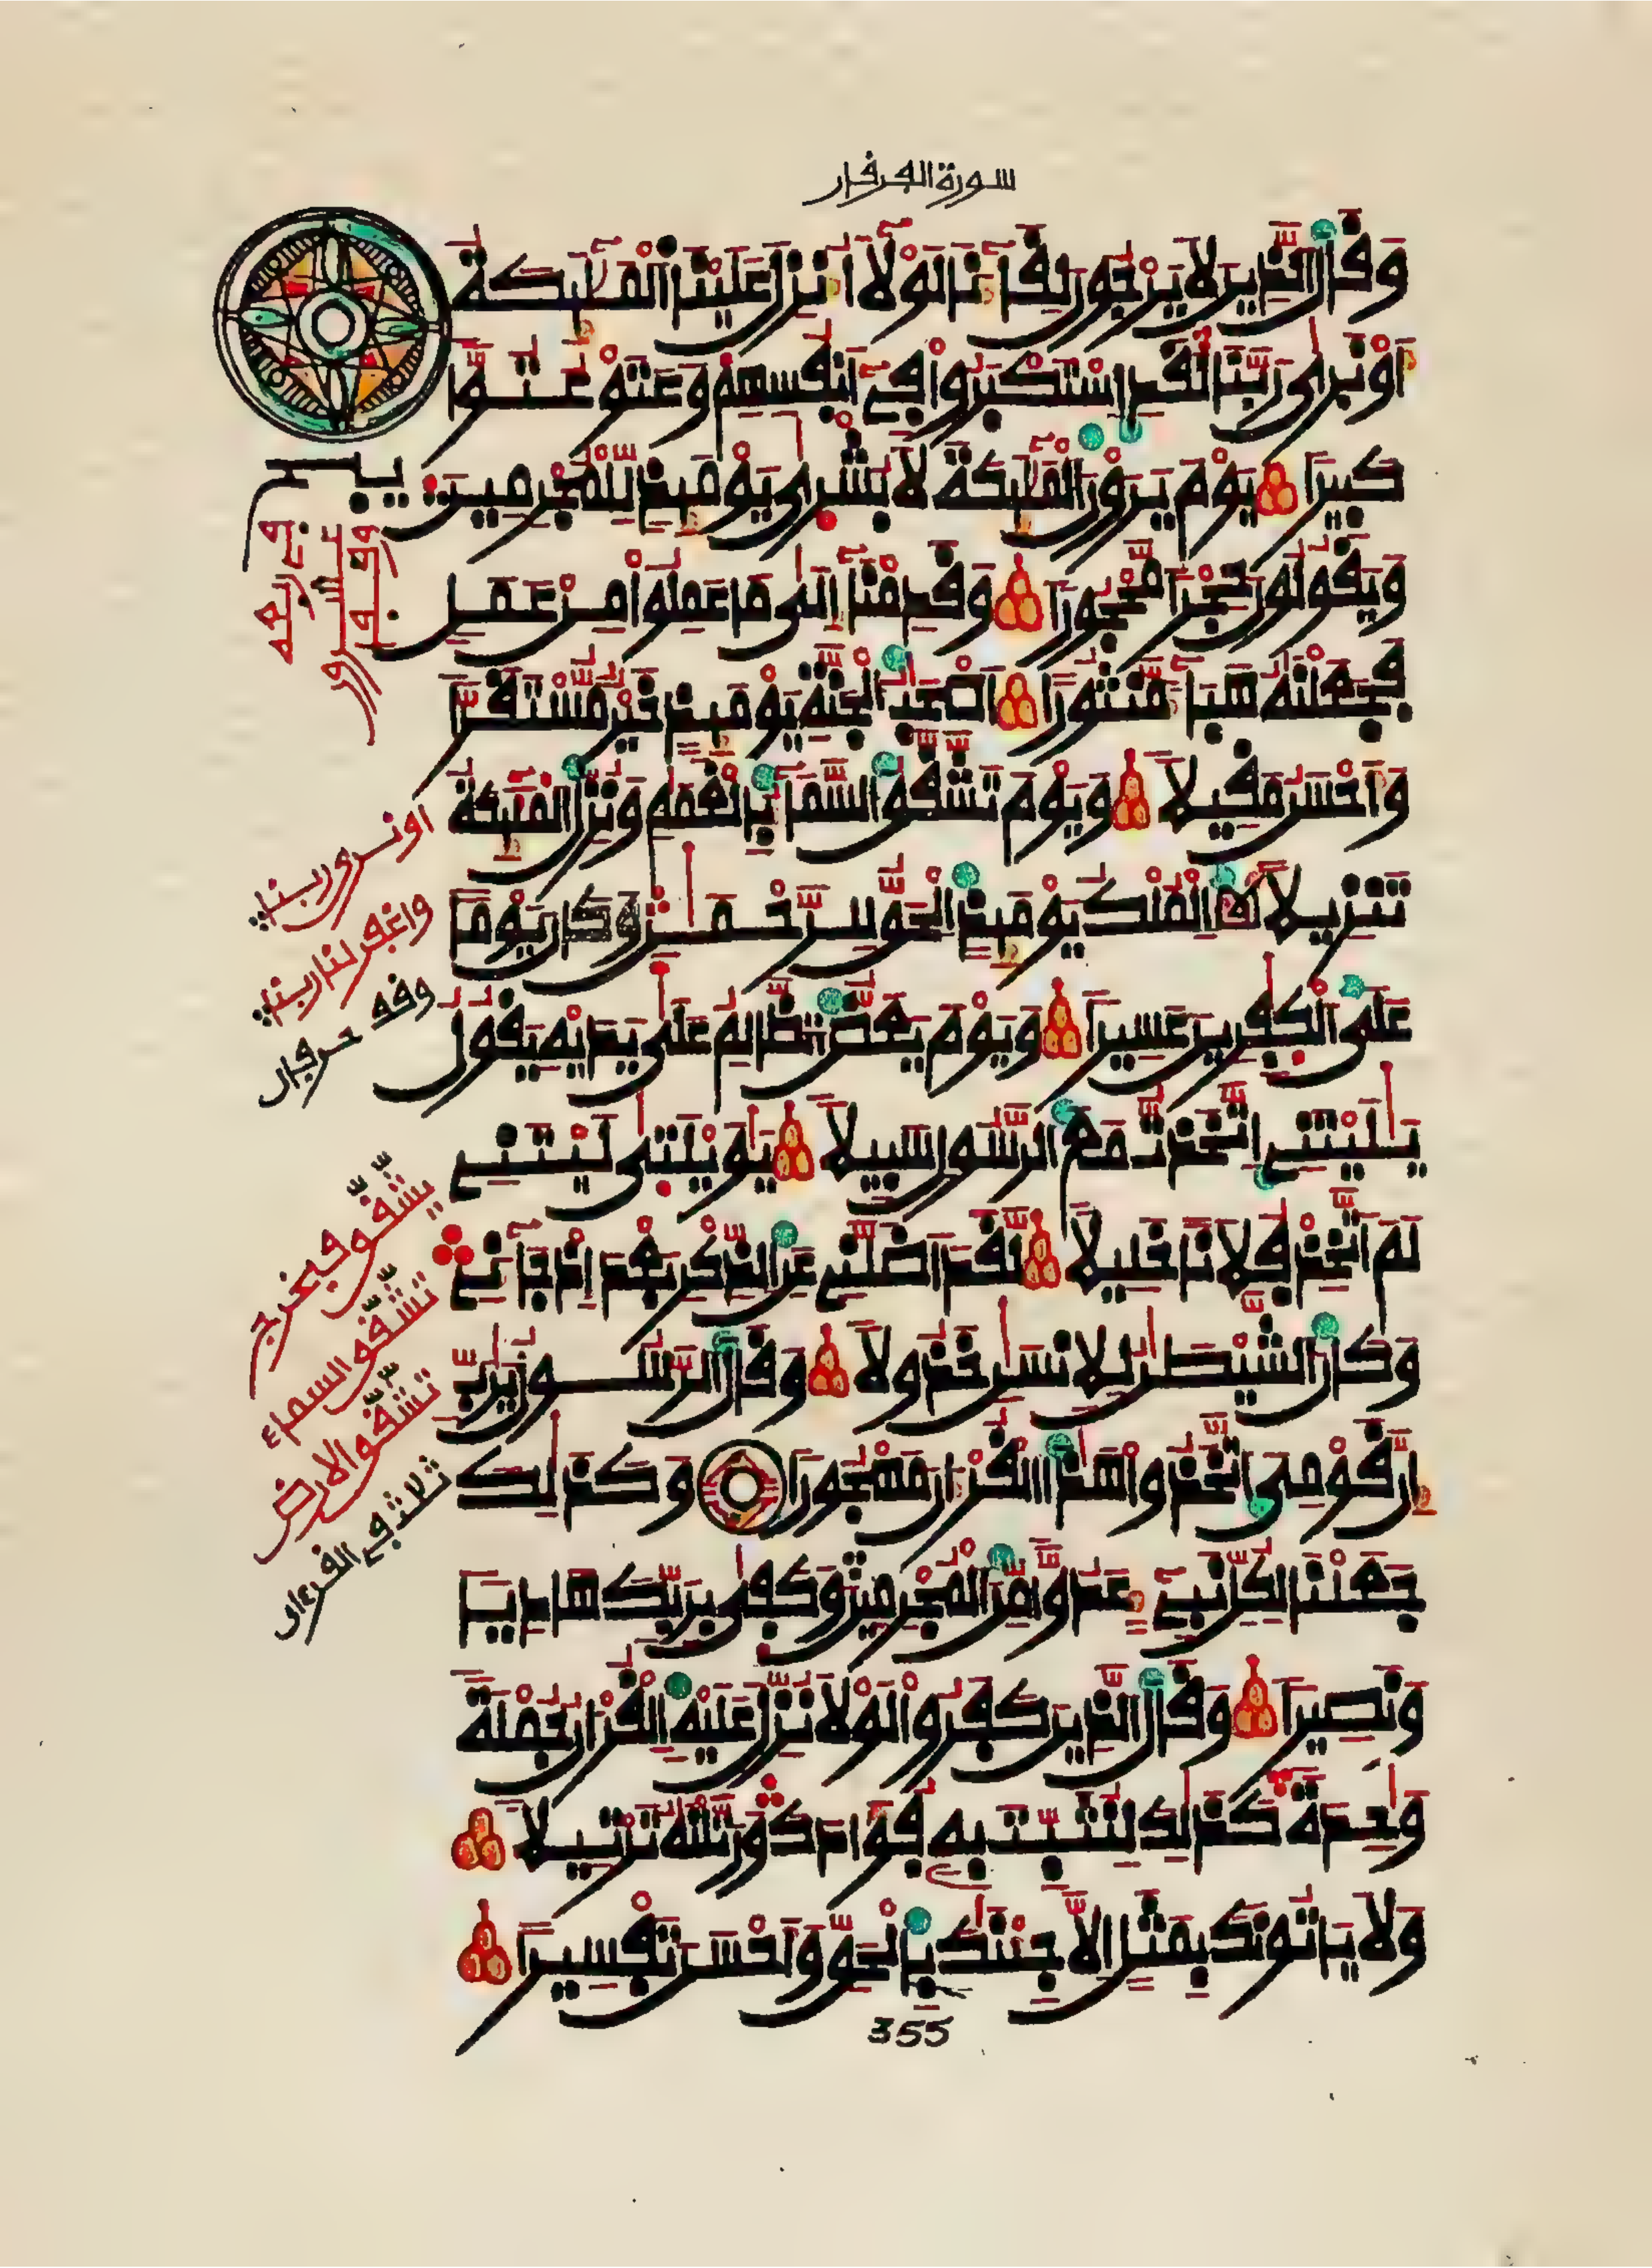 سورة الفرقان
وقال الذين لا يرجون لقاءنا لولا أنزل علينا الملئكة
أو نرى ربنا لقد استكبروا في أنفسهم وعتو عتوا
كبيرا يوم يرون الملئكة لا بشرى يومئذ للمجرمين
ويقولون حجرا محجورا وقدمنا إلى ما عملوا من عمل
فجعلنه هباء منثورا أصحب الجنة يومئذ خير مستقرا
وأحسن مقيلا ويوم تشقق السماء بالغمم ونزل الملئكة
تنزيلا الملك يومئذ الحق للرحمن وكان يوما
على الكفرين عسيرا ويوم يعض الظالم على يديه يقول
يليتني اتخذت مع الرسول سبيلا يويلتى ليتني
لم أتخذ فلانا خليلا لقد أضلني عن الذكر بعد إذ جاءني
وكان الشيطن للانسن خذولا وقال الرسول يرب
إن قومي اتخذوا هذا القرءان مهجورا وكذلك
جعلنا لكل نبيء عدوا من المجرمين وكفى بربك هاديا
ونصيرا وقال الذين كفروا لولا نزل عليه القرءان جملة
وحدة كذلك لنثبت به فؤادك ورتلنه ترتيلا
ولا ياتونك بمثل إلا جئنك بالحق وأحسن تفسيرا
355
أو نرى ربنا
واغفر لنا ربنا
وقف حرفان
يشقق فيخرج
تشقق السماء
تشقق الارض
ثلاث في القرءان